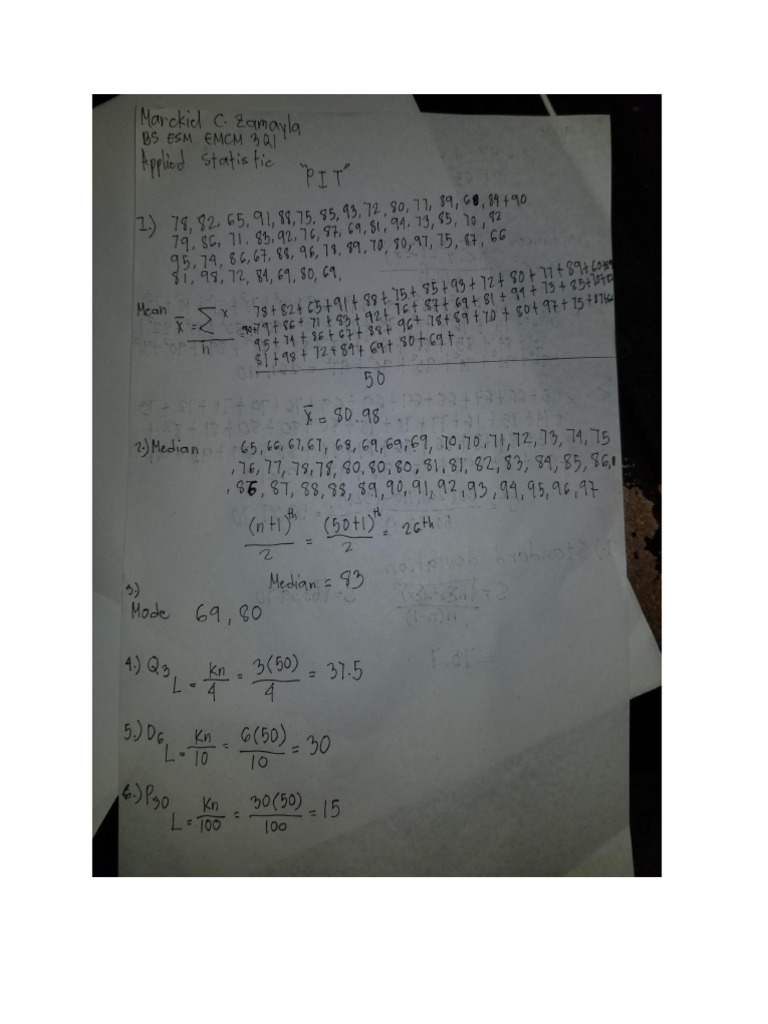 Marckiel C. Zamayla
BS ESM EMCM 3Q1
Applied Statistic
"PIT"
1.) 78, 82, 65, 91, 88, 75, 85, 93, 72, 80, 77, 89, 68, 84+90
79, 86, 71, 83, 92, 76, 87, 69, 81, 94, 73, 85, 70, 82
95, 74, 86, 67, 88, 96, 78, 89, 70, 80, 97, 75, 87, 66
81, 98, 72, 84, 69, 80, 69,
Mean x̄ = ∑ x / n
78+82+65+91+88+75+85+93+72+80+77+89+
79+86+71+83+92+76+87+69+81+94+73+85+
95+74+86+67+88+96+78+89+70+80+97+75+
81+98+72+84+69+80+69+
50
x̄ = 80.98
2.) Median 65, 66, 67, 67, 68, 69, 69, 69, 70, 70, 71, 72, 73, 74, 75
, 76, 77, 78, 78, 80, 80, 80, 81, 81, 82, 83, 84, 85, 86,
, 86, 87, 88, 88, 89, 90, 91, 92, 93, 94, 95, 96, 97
(n+1)th / 2 = (50+1)th / 2 = 26th
Median = 83
3.)
Mode 69, 80
4.) Q3
L = Kn / 4 = 3(50) / 4 = 37.5
5.) D6
L = Kn / 10 = 6(50) / 10 = 30
6.) P30
L = Kn / 100 = 30(50) / 100 = 15